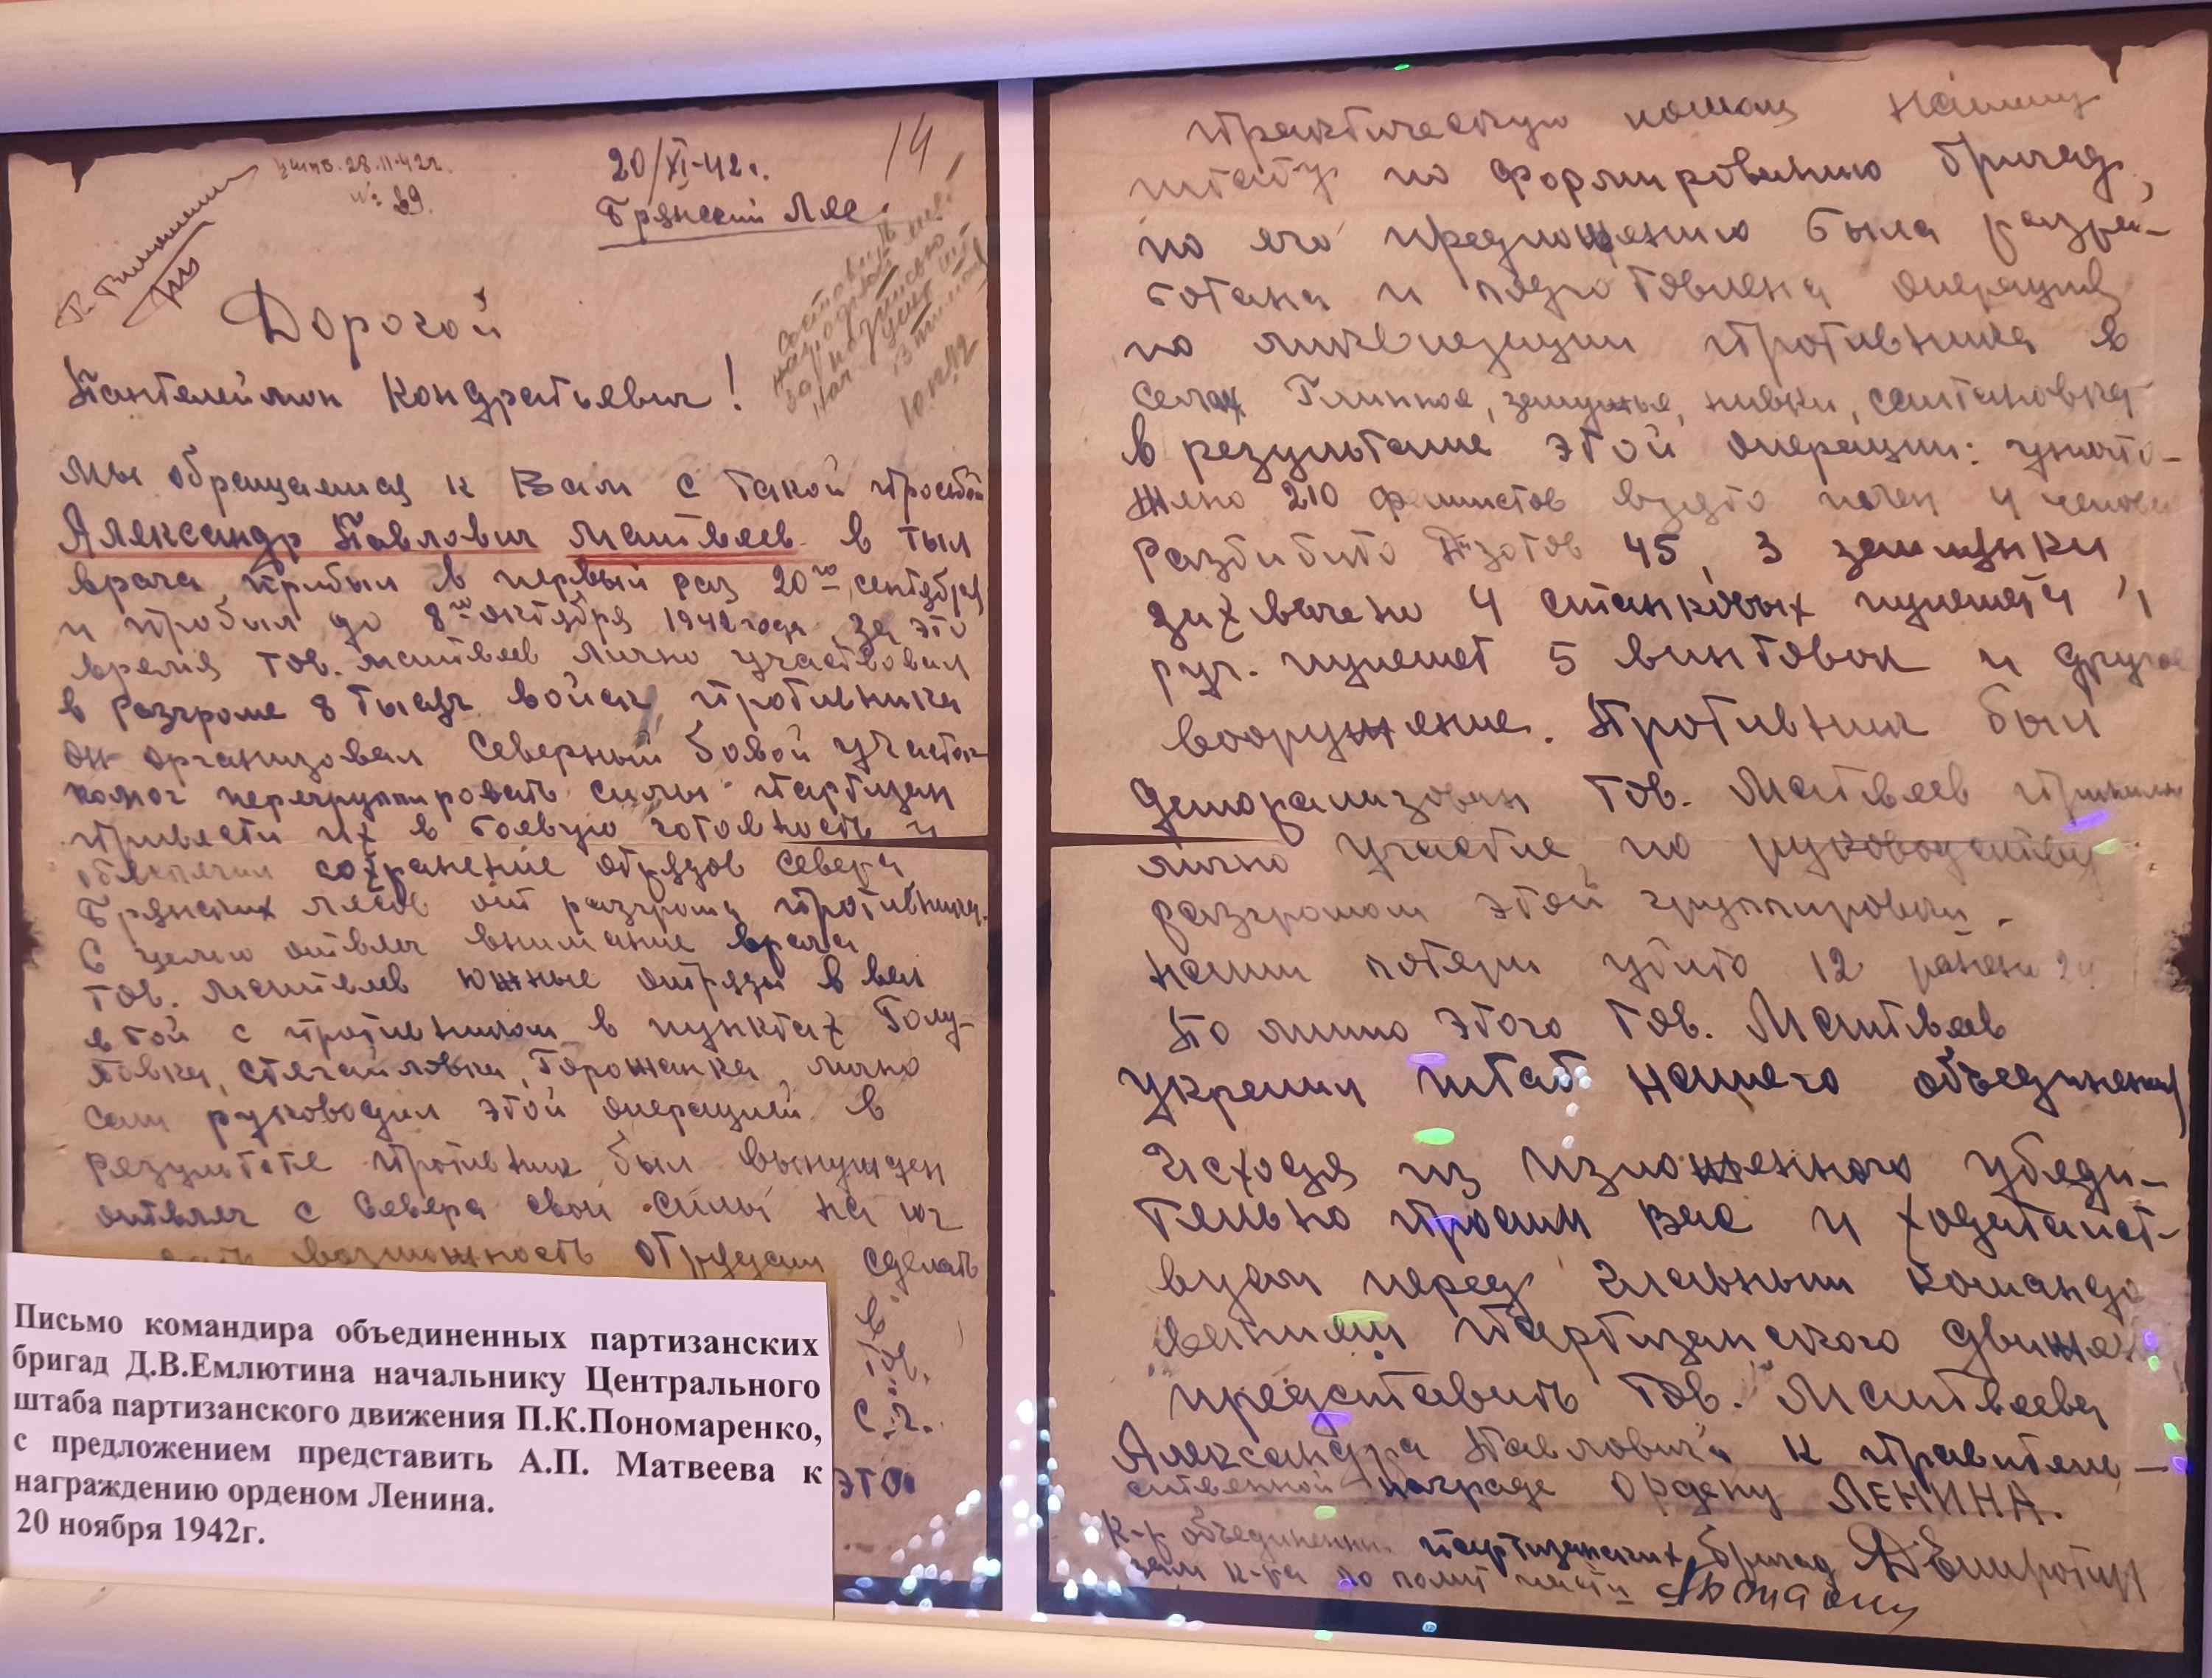 20/XI-42г.
Брянский Лес.
14
28.11.42г.
№ 89.
Дорогой
Пантелеймон Кондратьевич!
Мы обращаемся к Вам с такой просьбой
Александр Павлович Матвеев в тыл
врага прибыл в первый раз 20го сентября
и пробыл до 8го октября 1942 года за это
время тов. Матвеев лично участвовал
в разгроме 8 тысяч войск противника
он организовал Северный боевой участок
помог перегруппировать силы партизан
привести их в боевую готовность и
обеспечил сохранение отрядов севера
Брянских лесов от разгрома противника.
С целью отвлеч внимание врага
тов. Матвеев южные отряды в вел
в бой с противником в пунктах Голу-
бовка, Стягайловка, Горожанка, лично
сам руководил этой операцией в
результате противник был вынужден
отвлеч с Севера свои силы на юг
возможность отрядам сделать
в
это
практическую помощ нашему
штабу по формированию бригад,
по его предложению была разра-
ботана и подготовлена операция
по ликвидации противника в
селах Глинное, земунье, нивки, святановка
в результате этой операции: уничто-
жено 210 фашистов взято в плен 4 челове
Разбито Дзотов 45, 3 землянки
захвачено 4 станковых пулемета 1
руч. пулемет 5 винтовок и другое
вооружение. Противник был
деморализован тов. Матвеев принимал
лично участие по руководству
разгромом этой группировки.
наши потери убито 12 ранено
По мимо этого тов. Матвеев
укрепил штаб нашего объединения
Исходя из изложенного убеди-
тельно просим Вас и ходатайст-
вуем перед Главным командо
ванием партизанского движен
представить тов. Матвеева
Александра Павловича к правитель-
ственной награде Ордену ЛЕНИНА.
К-р объединенн. партизанских бригад ДЕмлютин
зам к-ра по полит части
Письмо командира объединенных партизанских
бригад Д.В.Емлютина начальнику Центрального
штаба партизанского движения П.К.Пономаренко,
с предложением представить А.П. Матвеева к
награждению орденом Ленина.
20 ноября 1942г.